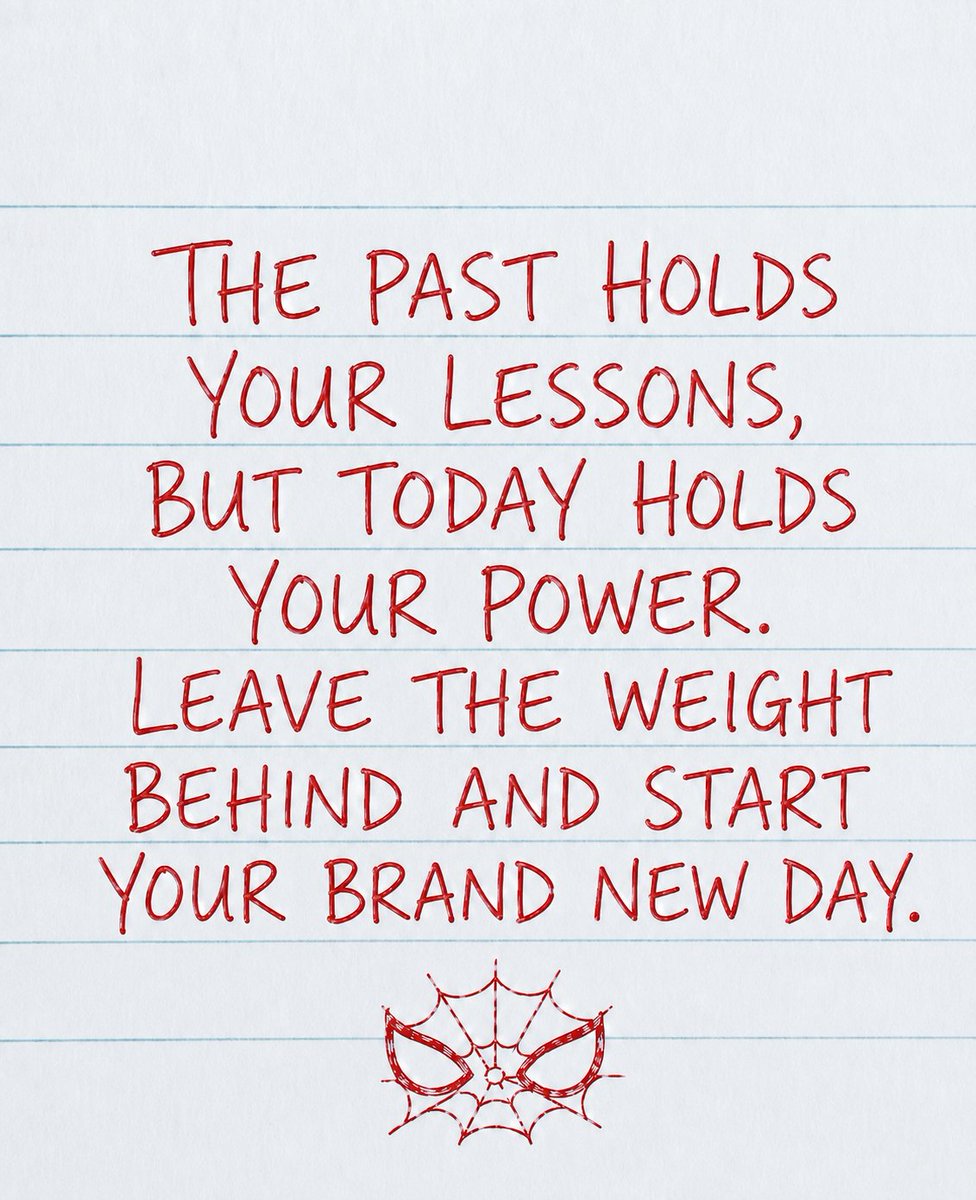 The past holds
your lessons,
but today holds
your power.
Leave the weight
behind and start
your brand new day.